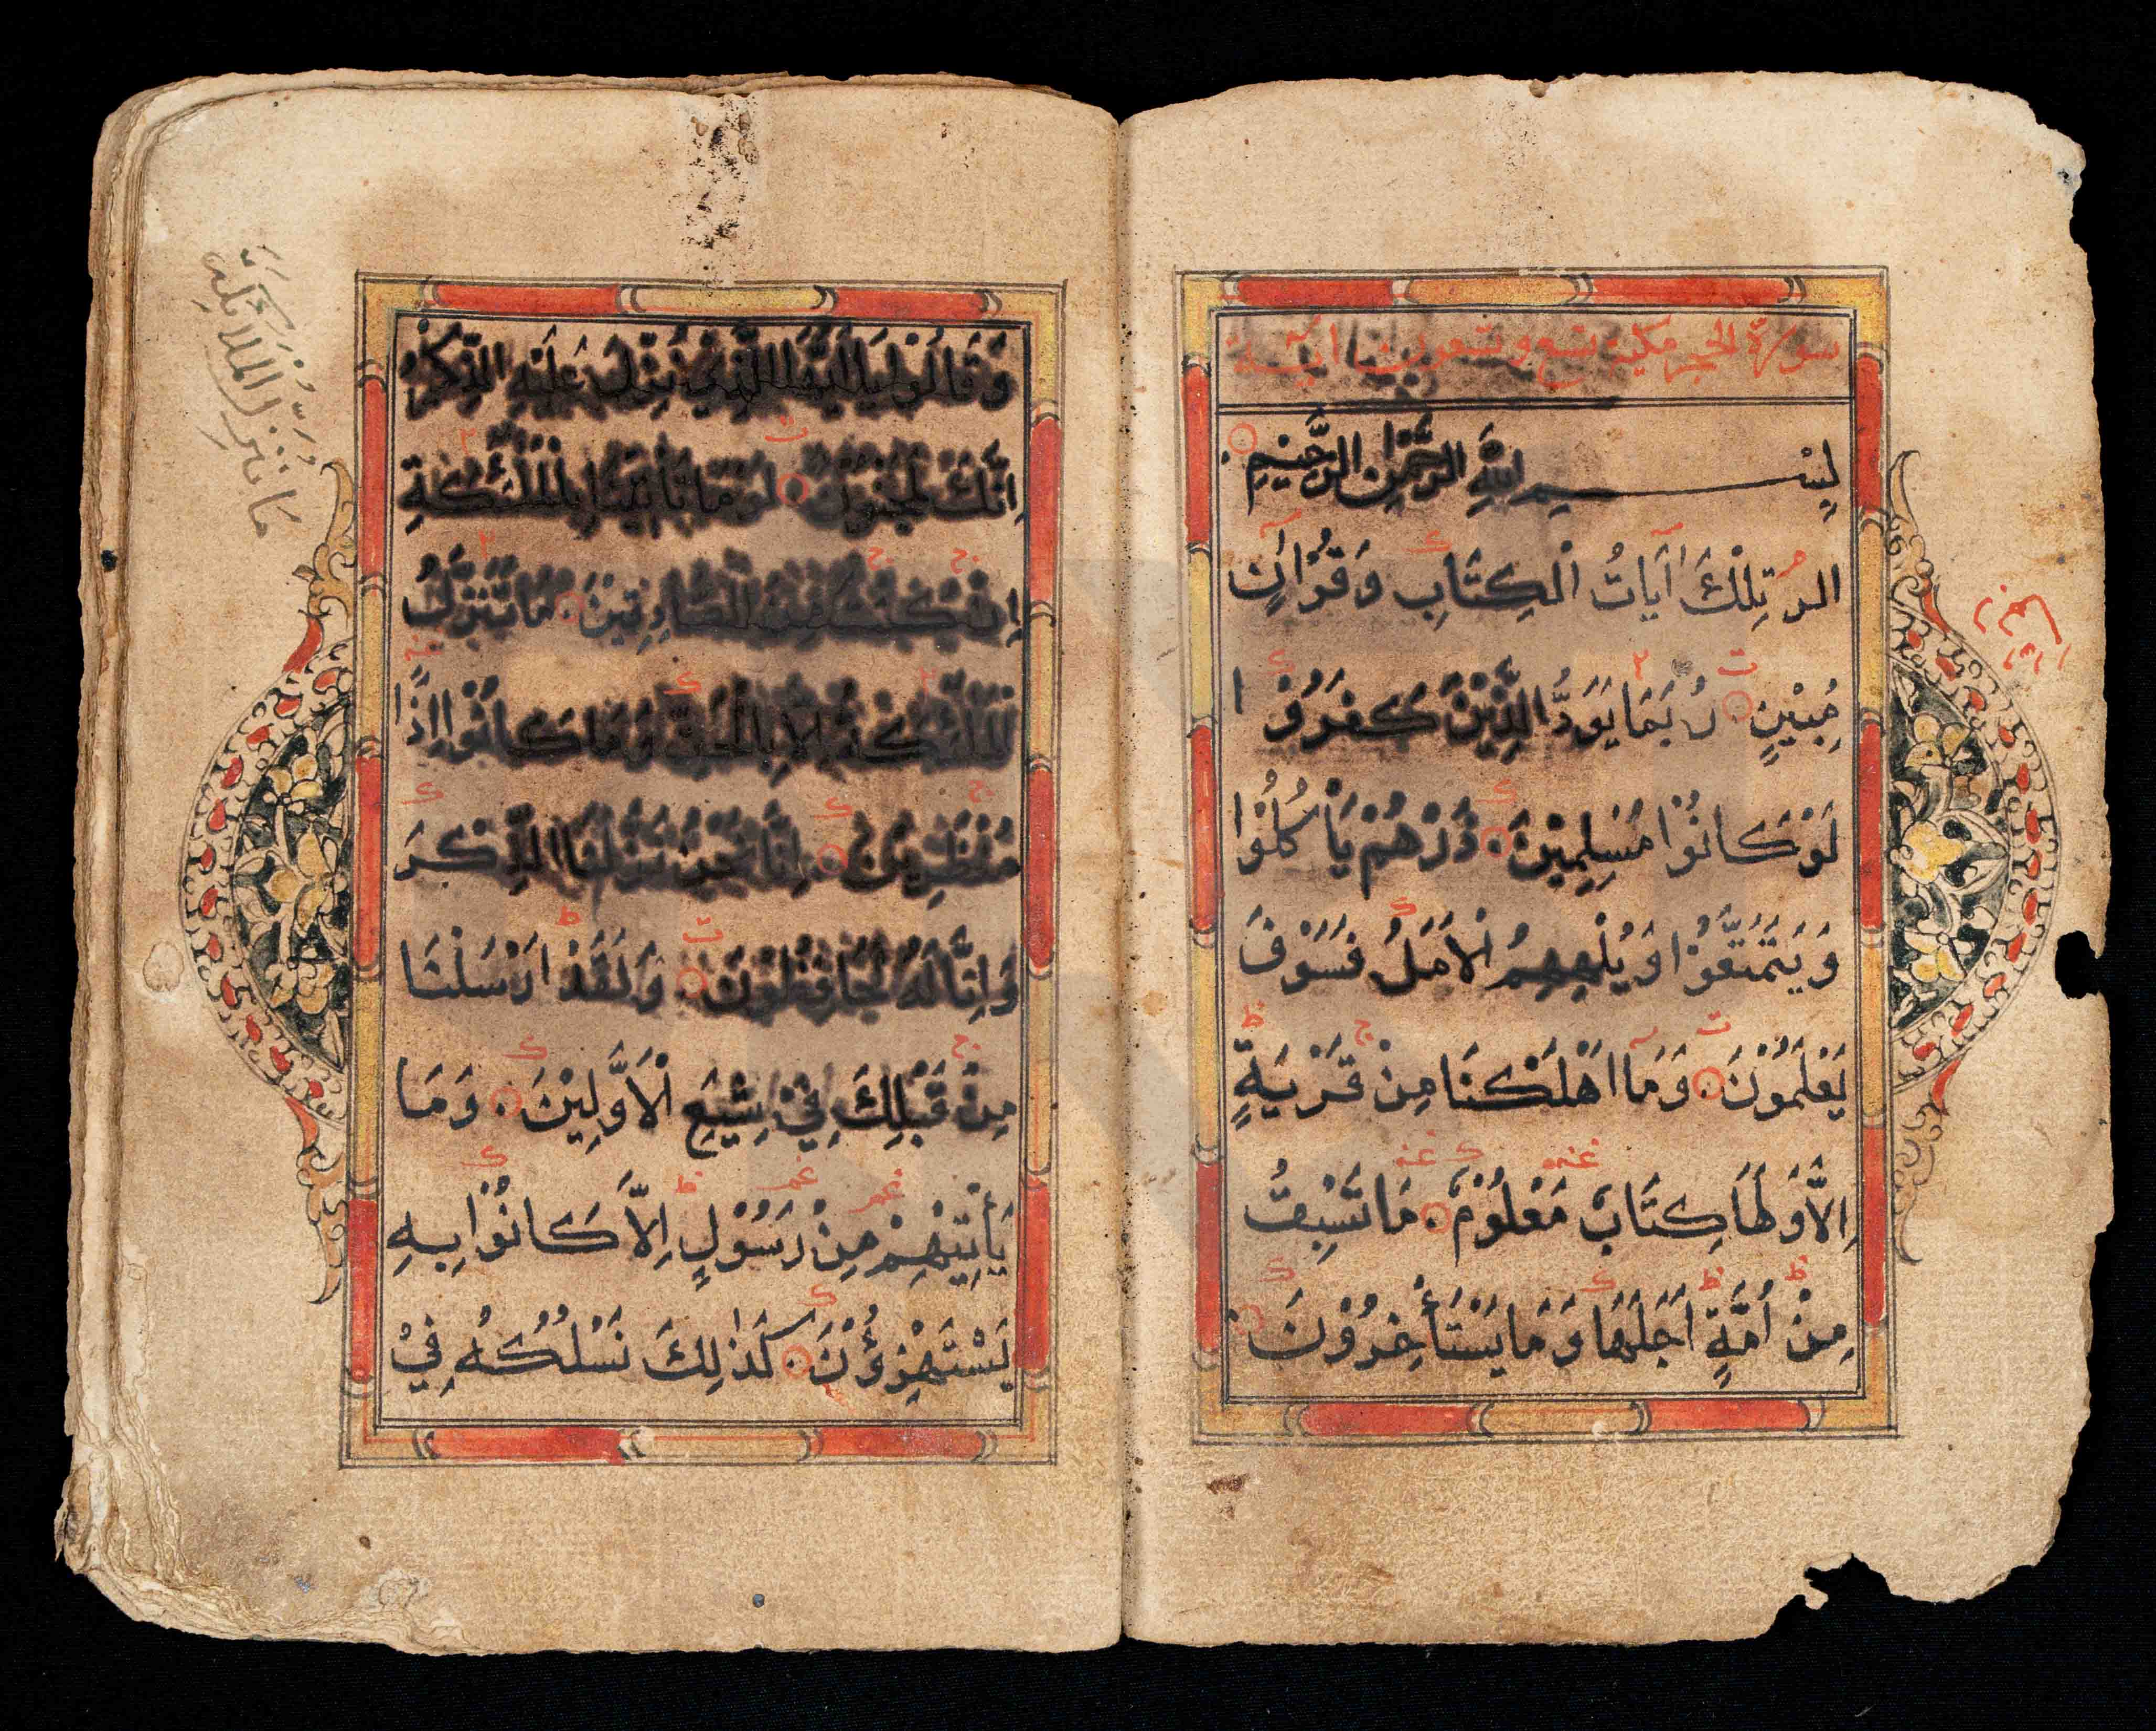 سورة الحجر مكية تسع وتسعون اية
بِسْمِ اللَّهِ الرَّحْمٰنِ الرَّحِيْمِ
الر تِلْكَ آيَاتُ الْكِتَابِ وَقُرْآنٍ
مُبِيْنٍ رُبَمَا يَوَدُّ الَّذِيْنَ كَفَرُوْا
لَوْ كَانُوْا مُسْلِمِيْنَ ذَرْهُمْ يَأْكُلُوْا
وَيَتَمَتَّعُوْا وَيُلْهِهِمُ الْاَمَلُ فَسَوْفَ
يَعْلَمُوْنَ وَمَا اَهْلَكْنَا مِنْ قَرْيَةٍ
اِلَّا وَلَهَا كِتَابٌ مَعْلُوْمٌ مَا تَسْبِقُ
مِنْ اُمَّةٍ اَجَلَهَا وَمَا يَسْتَأْخِرُوْنَ
وَقَالُوْا يَا اَيُّهَا الَّذِيْ نُزِّلَ عَلَيْهِ الذِّكْرُ
اِنَّكَ لَمَجْنُوْنٌ لَوْ مَا تَأْتِيْنَا بِالْمَلٰئِكَةِ
اِنْ كُنْتَ مِنَ الصَّادِقِيْنَ مَا تَنَزَّلُ
الْمَلٰئِكَةُ اِلَّا بِالْحَقِّ وَمَا كَانُوْا اِذًا
مُنْظَرِيْنَ اِنَّا نَحْنُ نَزَّلْنَا الذِّكْرَ
وَاِنَّا لَهُ لَحَافِظُوْنَ وَلَقَدْ اَرْسَلْنَا
مِنْ قَبْلِكَ فِيْ شِيَعِ الْاَوَّلِيْنَ وَمَا
يَأْتِيْهِمْ مِنْ رَسُوْلٍ اِلَّا كَانُوْا بِهِ
يَسْتَهْزِؤُنَ كَذٰلِكَ نَسْلُكُهُ فِيْ
مَا نُنَزِّلُ الْمَلَائِكَةَ